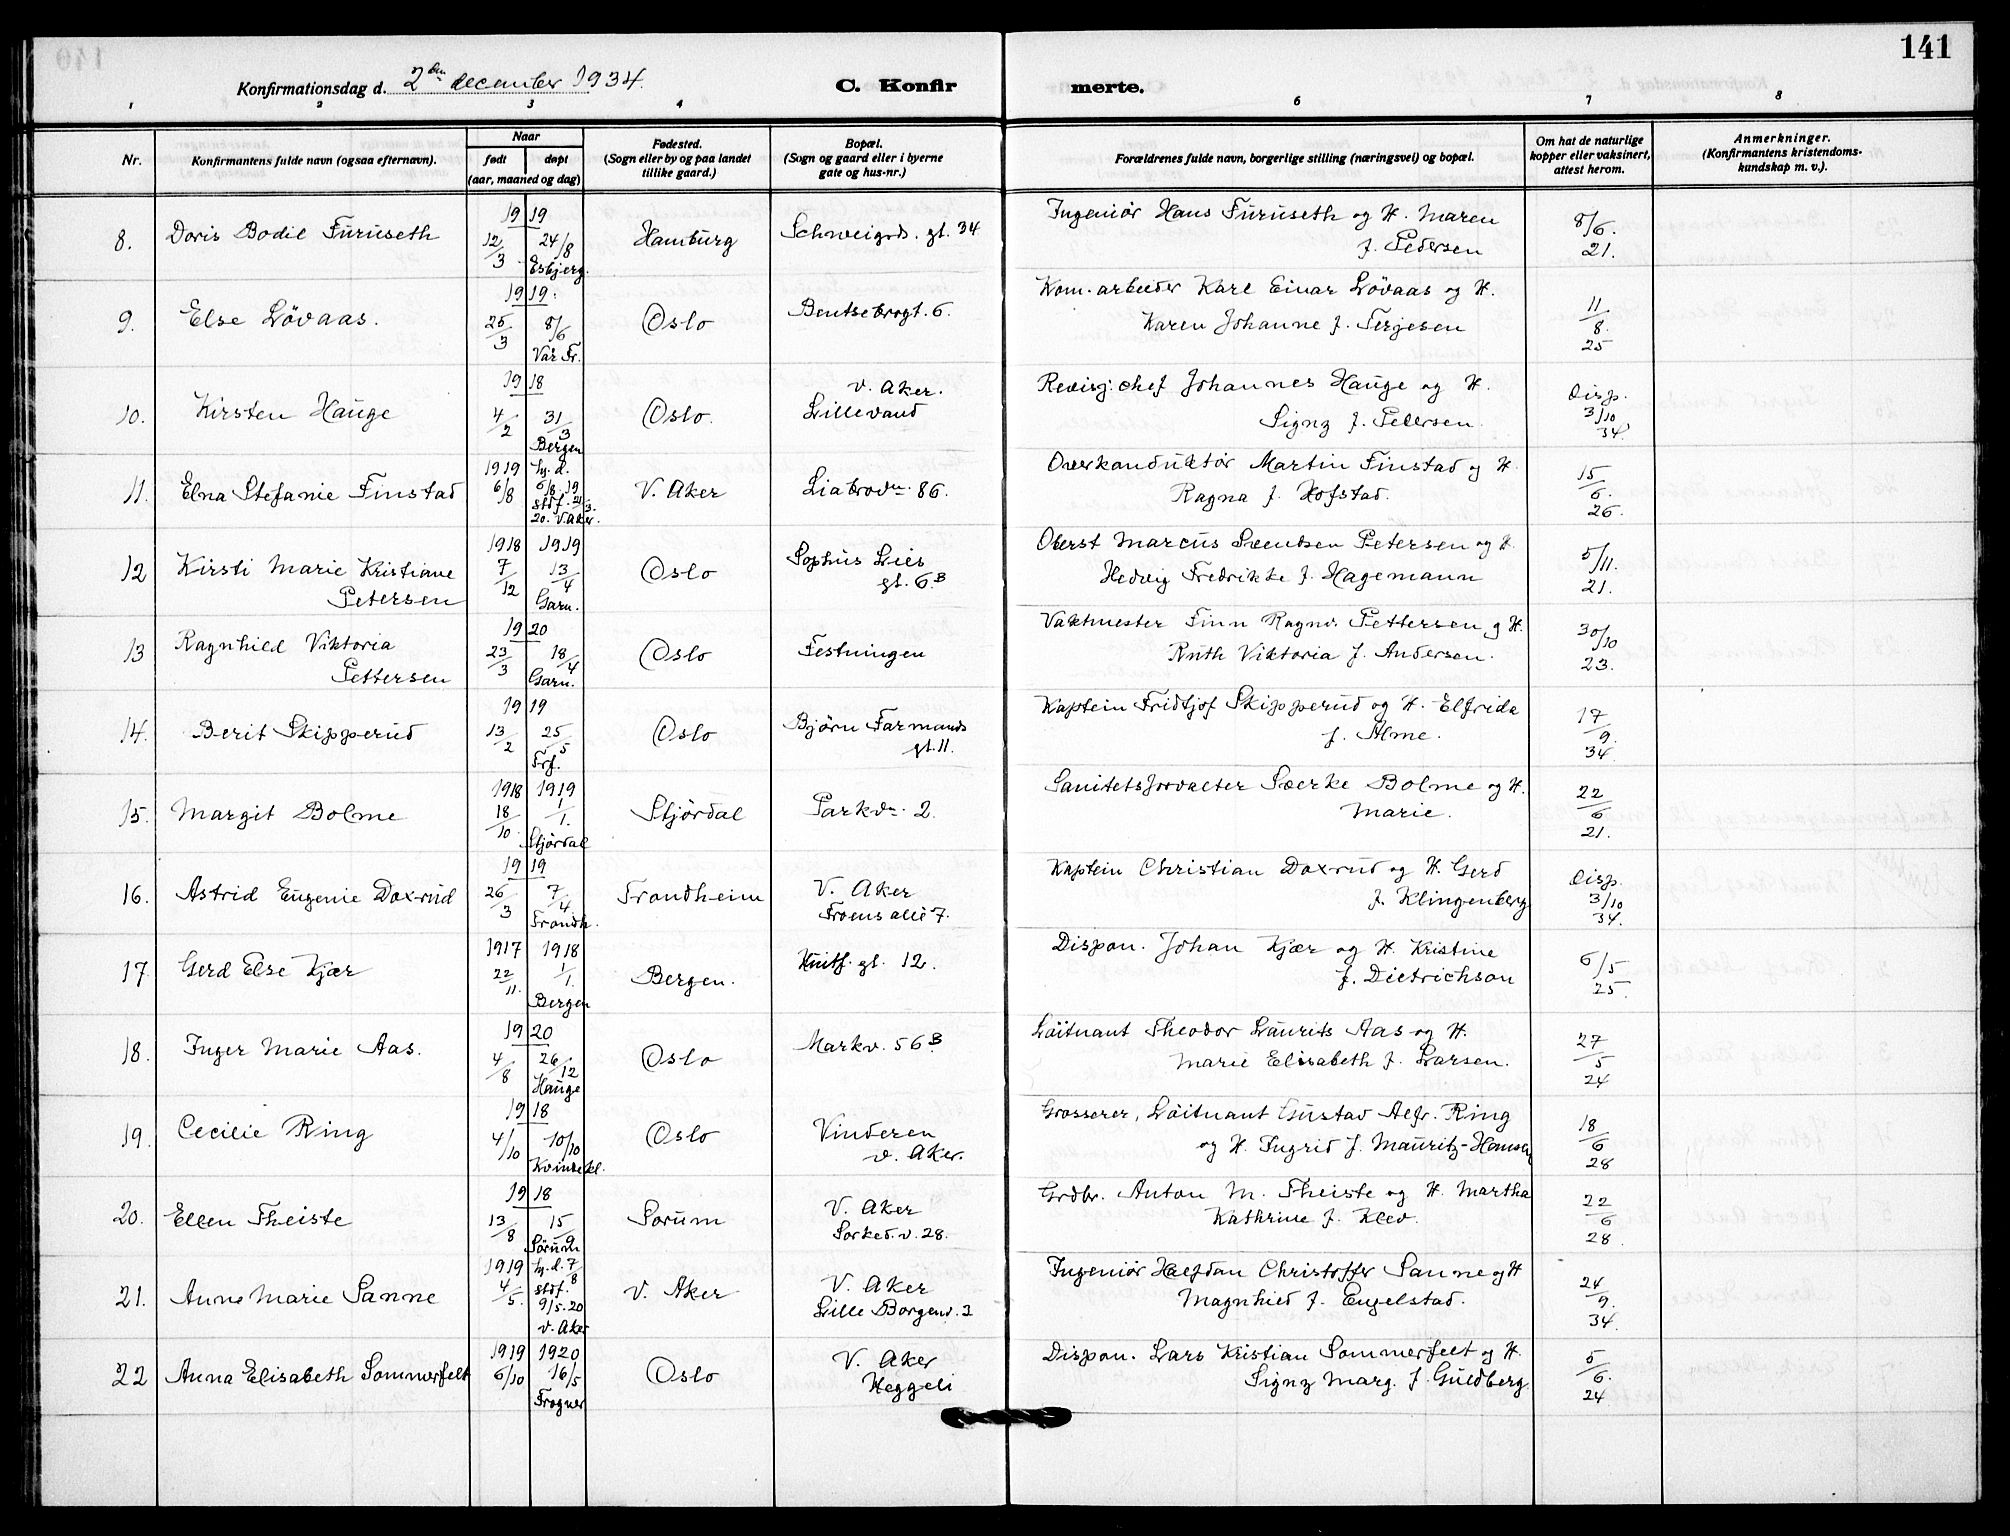 141
Konfirmationsdag d. 2den december 1934.
C. Konfirmerte.
1 2 3 4 5 6 7 8
Nr.
Konfirmantens fulde navn (ogsaa efternavn).
Naar
født
døpt
(aar, maaned og dag)
Fødested.
(Sogn eller by og paa landet
tillike gaard.)
Bopæl.
(Sogn og gaard eller i byerne
gate og hus-nr.)
Forældrenes fulde navn, borgerlige stilling (næringsvei) og bopæl.
Om hat de naturlige
kopper eller vaksinert,
attest herom.
Anmerkninger.
(Konfirmantens kristendoms-
kundskap m. v.).
8. Doris Bodil Furuseth
1919
12/3
24/8
Esbjerg.
Hamburg
Schweigrds. gt. 34
Ingeniør Hans Furuseth og H. Maren
f. Pedersen
8/6.
21.
9. Else Lövaas.
1919.
25/3
8/6
Vår Fr.
Oslo
Bentsebrogt. 6.
Kom. arbeider Karl Einar Lövaas og H.
Karen Johanne f. Terjesen
11/8.
25
10. Kirsten Hauge
1918
4/2
31/3
Bergen
Oslo.
V. Aker.
Lillevand
Revisj. chef Johannes Hauge og H.
Signy f. Pedersen.
Disp.
3/10
34.
11. Elna Stefanie Finstad
1919
6/8
hj. d.
6/8 19
stdf. 21/3.
20. V. Aker.
V. Aker
Liabrovn. 86.
Overkonduktør Martin Finstad og H.
Ragna f. Hofstad.
15/6.
26.
12 Kirsti Marie Kristiane
Petersen
1918
7/12
1919
13/4
Garn.
Oslo
Sophus Lies
gt. 6B
Oberst Marcus Svendsen Petersen og H.
Hedvig Fredrikke f. Hagemann
5/11.
21.
13 Ragnhild Viktoria
Pettersen
1920
23/3
18/4
Garn.
Oslo
Festningen
Vaktmester Finn Ragnv. Pettersen og H.
Ruth Viktoria f. Andersen.
30/10
23.
14. Berit Skipperud
1919
13/2
25/5
Frf.
Oslo
Bjørn Farmands
gt. 11.
Kaptein Fridtjof Skipperud og H. Elfrida
f. Alme.
17/9.
34
15. Margit Bolme
1918
18/10
1919
1/1.
Stjørdal
Stjørdal
Parkvn. 2.
Sanitetsforvalter Sverke Bolme og H.
Marie.
22/6
21.
16. Astrid Eugenie Doxrud
1919
26/3
7/4
Trondh.
Trondheim
V. Aker
Froens allé 7.
Kaptein Christian Doxrud og H. Gerd
f. Klingenberg
Disp.
3/10
34.
17. Gerd Else Kjær
1917
22/11.
1918
1/1.
Bergen
Bergen.
Huitf. gt. 12.
Dispon. Johan Kjær og H. Kristine
f. Dietrichson
6/5
25.
18. Inger Marie Aas.
1920
4/8
26/12
Hauge
Oslo
Markv. 56B.
Löitnant Theodor Laurits Aas og H.
Marie Elisabeth f. Larsen.
27/5
24
19. Cecilie Ring
1918
4/10
10/10
Kvindekl.
Oslo
Vinderen
V. Aker.
Grosserer, Löitnant Gustav Alfr. Ring
og H. Ingrid f. Mauritz-Hansen
18/6
28
20. Ellen Theiste
1918
13/8
15/9
Sörum
Sorum
V. Aker
Sorked. v. 28.
Grdbr. Anton M. Theiste og H. Martha
Kathrine f. Klev.
22/6
28.
21. Anne Marie Sanne
1919
4/5.
hj. d. 7/8
stdf.
9/5. 20
V. Aker
V. Aker
V. Aker
Lille Borgenv. 3
Ingeniør Halfdan Christoffer Sanne og H
Magnhild f. Engelstad.
24/9.
34.
22 Anna Elisabeth Sommerfelt
1919
6/10
1920
16/5
Frogner
Oslo
V. Aker
Heggeli
Dispon. Lars Kristian Sommerfelt og H.
Signy Marg. f. Guldberg
5/6.
24